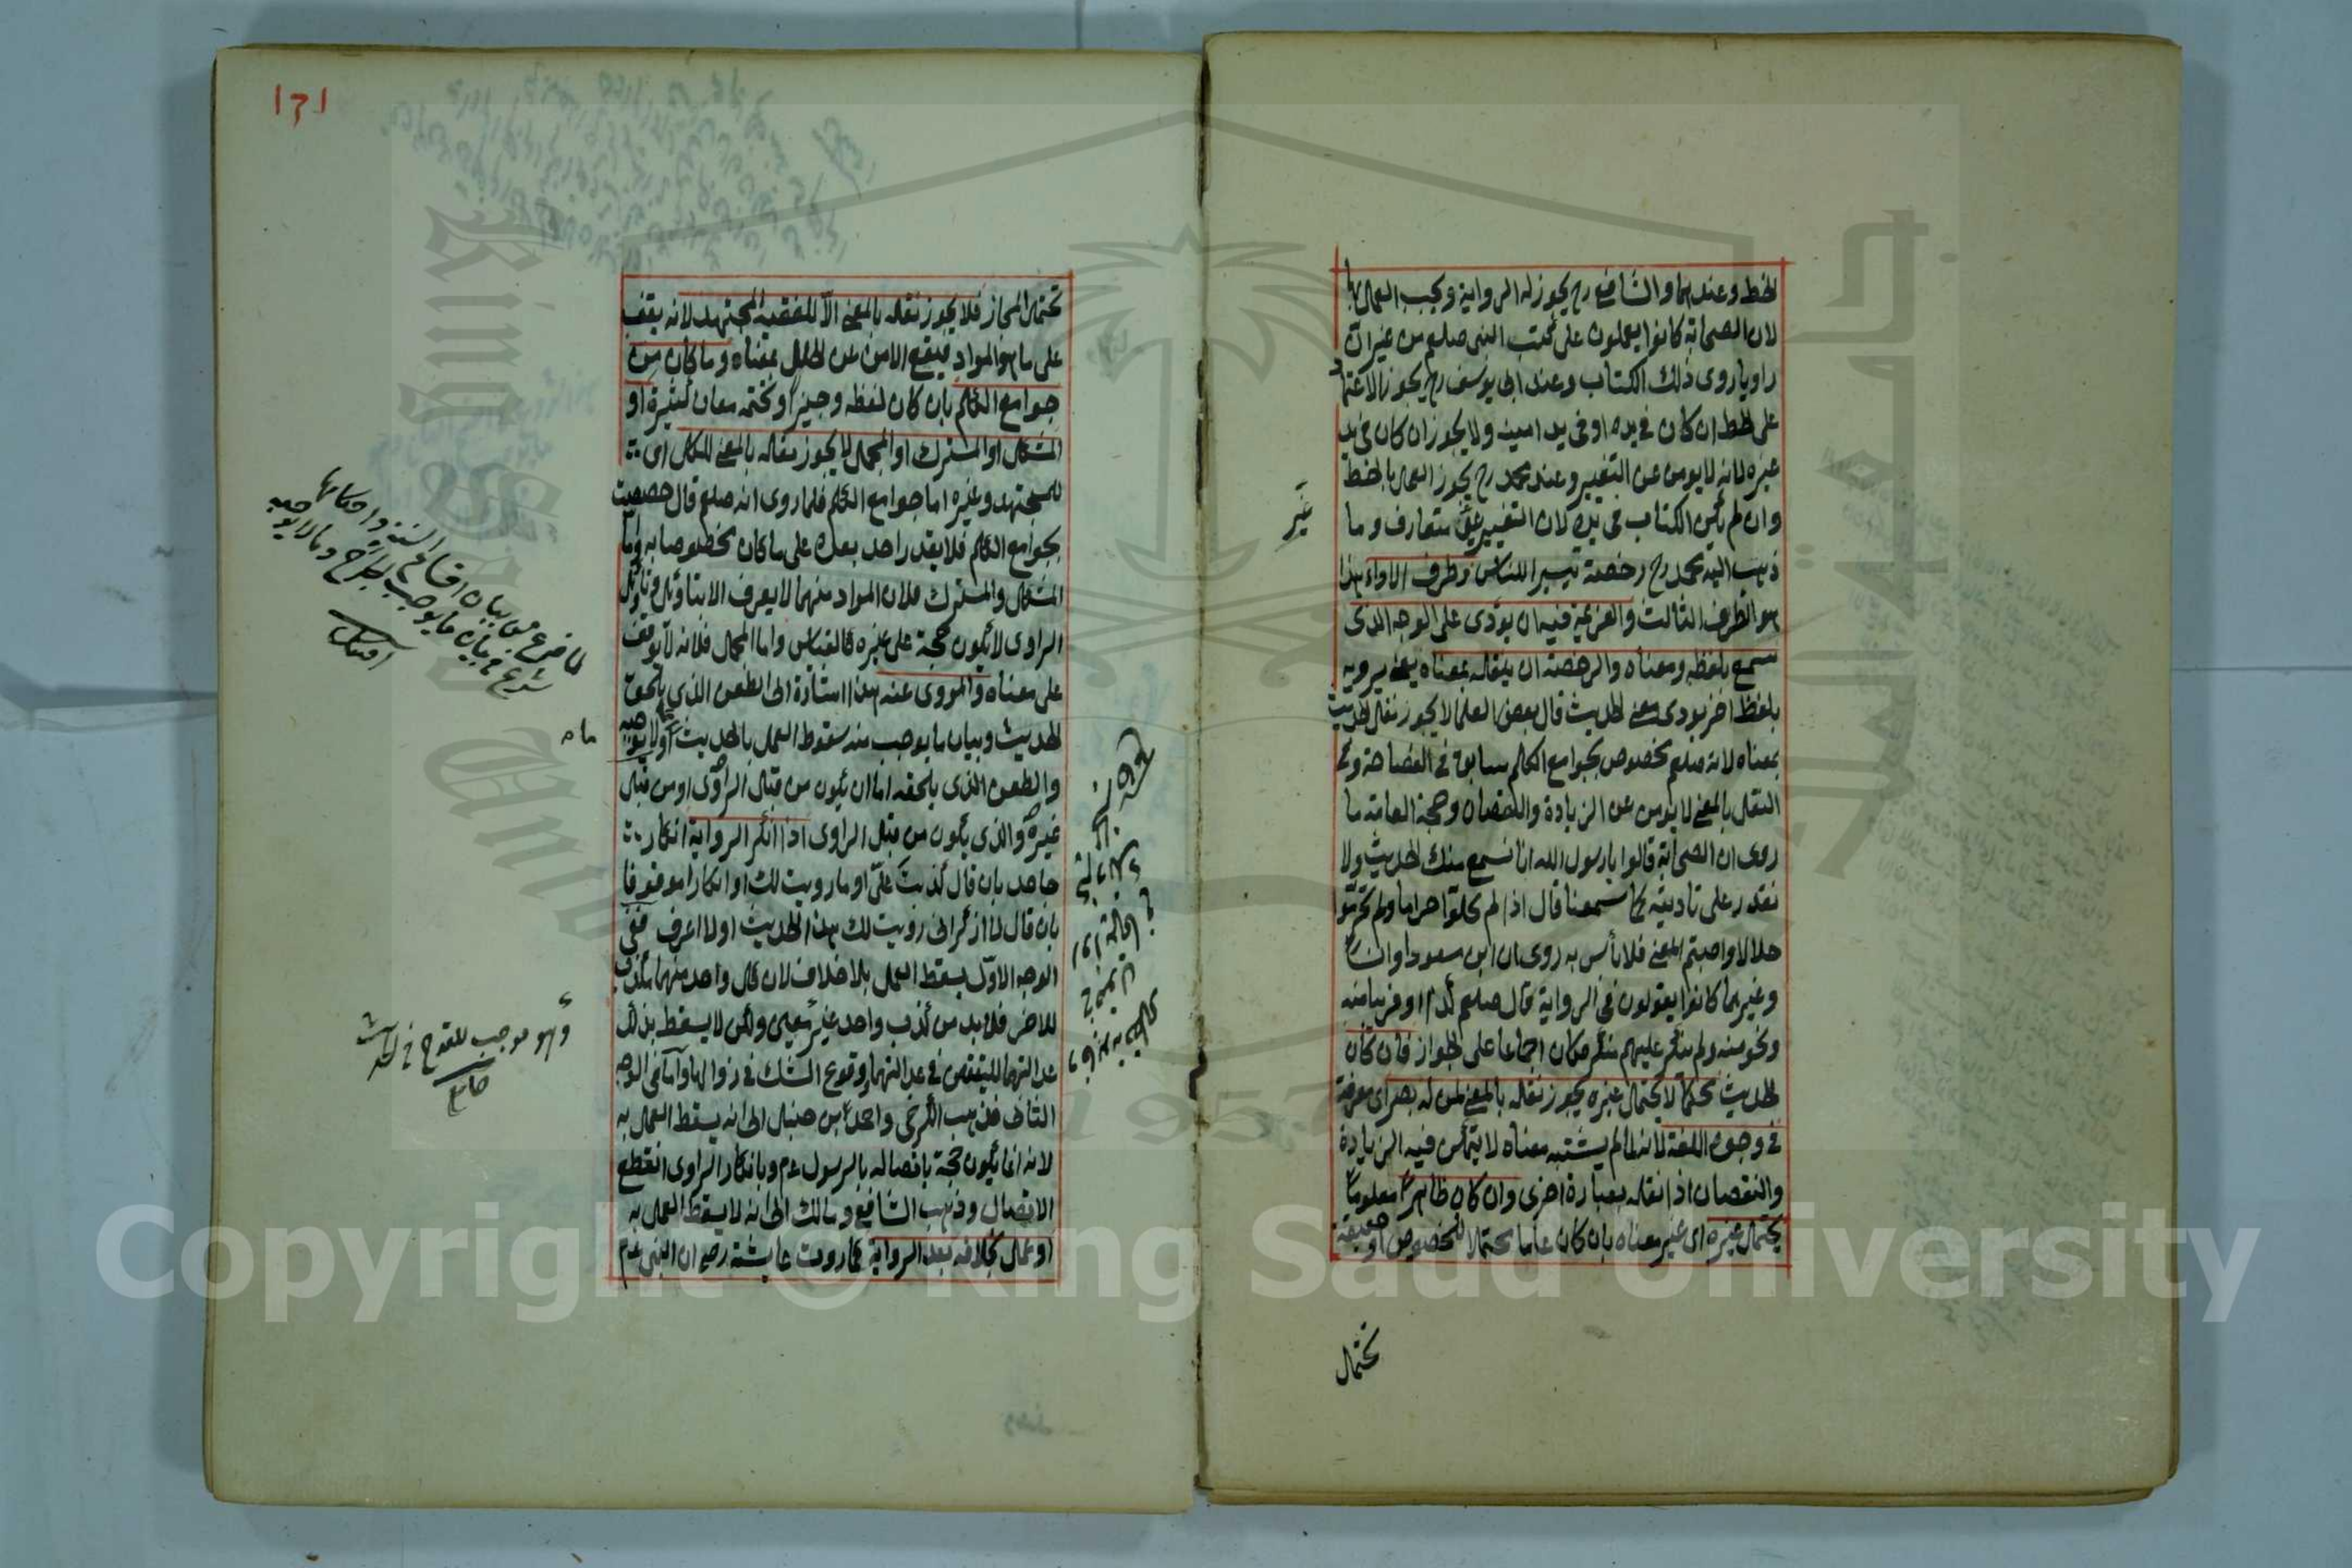 الخط وعندهما والشافعي رح يجوز له الرواية ويجب العمل بها
لان الصحابة كانوا يعملون على كتب النبى صلعم من غير ان
راويا روى ذلك الكتاب وعند ابى يوسف رح يجوز الاعتماد
على الخط ان كان فى يده او فى يد امينه ولا يجوز ان كان فى يد
غيره لانه لا يومن عن التغيير وعند محمد رح يجوز العمل بالخط
وان لم يكن الكتاب فى يده لان التغيير غير متعارف وما
ذهب اليه محمد رح رخصة تيسيرا للناس وطرف الاداء هذا
هو الطرف الثالث والعزيمة فيه ان يودى على الوجه الذى
سمع بلفظه ومعناه والرخصة ان ينقله بمعناه يعنى يرويه
بلفظ اخر يودى معنى الحديث قال بعض العلما لا يجوز نقل الحديث
بمعناه لانه صلعم مخصوص بجوامع الكلم سابق فى الفصاحة وفى
النقل بالمعنى لا يومن عن الزيادة والنقصان وحجة العامة ما
روى ان الصحابة قالوا يا رسول الله انا نسمع منك الحديث ولا
نقدر على تاديته كما سمعنا قال اذا لم تحلوا حراما ولم تحرموا
حلالا واصبتم المعنى فلا بأس به روى ان ابن مسعود وانسا
وغيرهما كانوا يقولون فى الرواية قال صلعم كذا او قريبا منه
ونحو منه ولم ينكر عليهم منكر فكان اجماعا على الجواز فان كان
الحديث محكما لا يحتمل غيره يجوز نقله بالمعنى لمن له بصر اى معرفة
فى وجوه اللغة لانه لما لم يشتبه معناه لا يتمكن فيه الزيادة
والنقصان اذا نقله بعبارة اخرى وان كان ظاهرا معلوما
يحتمل غيره اى غير معناه بان كان عاما محتمل الخصوص او حقيقة
تحتمل
غير
١٣١
تحتمل المجاز فلا يجوز نقله بالمعنى الا للفقيه المجتهد لانه يقف
على ما هو المراد فيقع الامن عن الخلل بمعناه وما كان من
جوامع الكلم بان كان لفظه وجيزا وتحته معان كثيرة او
المشكل او المشترك او المجمل لا يجوز نقله بالمعنى للكل اى
للمجتهد وغيره اما جوامع الكلم فلما روى انه صلعم قال خصصت
بجوامع الكلم فلا يقدر احد بعده على ما كان مخصوصا به واما
المشكل والمشترك فلان المراد منهما لا يعرف الا بتاويل وتاويل
الراوى لا يكون حجة على غيره كالقياس واما المجمل فلانه لا يوقف
على معناه والمروى عنه هذا اشارة الى الطعن الذى يلحق
الحديث وبيان ما يوجب منه سقوط العمل بالحديث او لا يوجبه
والطعن الذى يلحقه اما ان يكون من قبل الراوى او من قبل
غيره والذى يكون من قبل الراوى اذا انكر الرواية انكار
جاحد بان قال كذبت على او ما رويت لك او انكارا موقوفا
بان قال لا اذكر انى رويت لك هذا الحديث او لا اعرف ففى
الوجه الاول يسقط العمل بلا خلاف لان كل واحد منهما مكذب
للاخر فلا بد من كذب واحد غير معين ولكن لا يسقط بذلك
عدالتهما للتيقن فى عدالتهما ووقوع الشك فى زوالها واما فى الوجه
الثانى فذهب الكرخى واحمد بن حنبل الى انه يسقط العمل به
لانه انما يكون حجة باتصاله بالرسول عم وبانكار الراوى انقطع
الاتصال وذهب الشافعى ومالك الى انه لا يسقط العمل به
او عمل بخلافه بعد الرواية كما روت عايشة رضى ان النبى عم
لما فرغ من بيان اقسام السنة واحكامها
شرع فى بيان ما يوجب الجرح وما لا يوجبه
وهو موجب للقدح فى الحديث
Copyright © King Saud University
1957